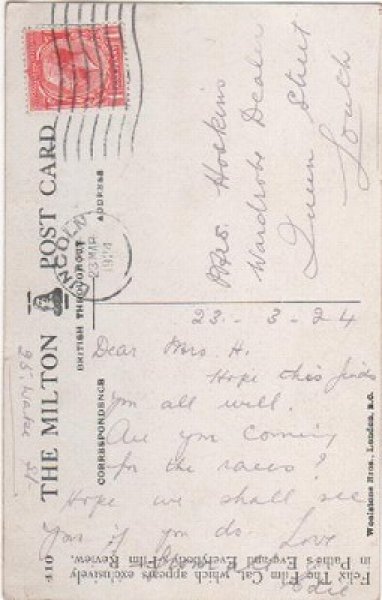 THE MILTON POST CARD
BRITISH THROUGHOUT
CORRESPONDENCE
ADDRESS
LINCOLN
23 MAR
1924
Mrs. Hoskins
Wardrobe Dealer
Queen Street
Louth
23 - 3 - 24
Dear Mrs H.
Hope this finds
you all well.
Are you coming
for the races?
Hope we shall see
you if you do. Love
Edie
95 Wake St
Woolstone Bros., London, E.C.
410
Felix The Film Cat, which appears exclusively
in Pathé's Eve and Everybody's Film Review.